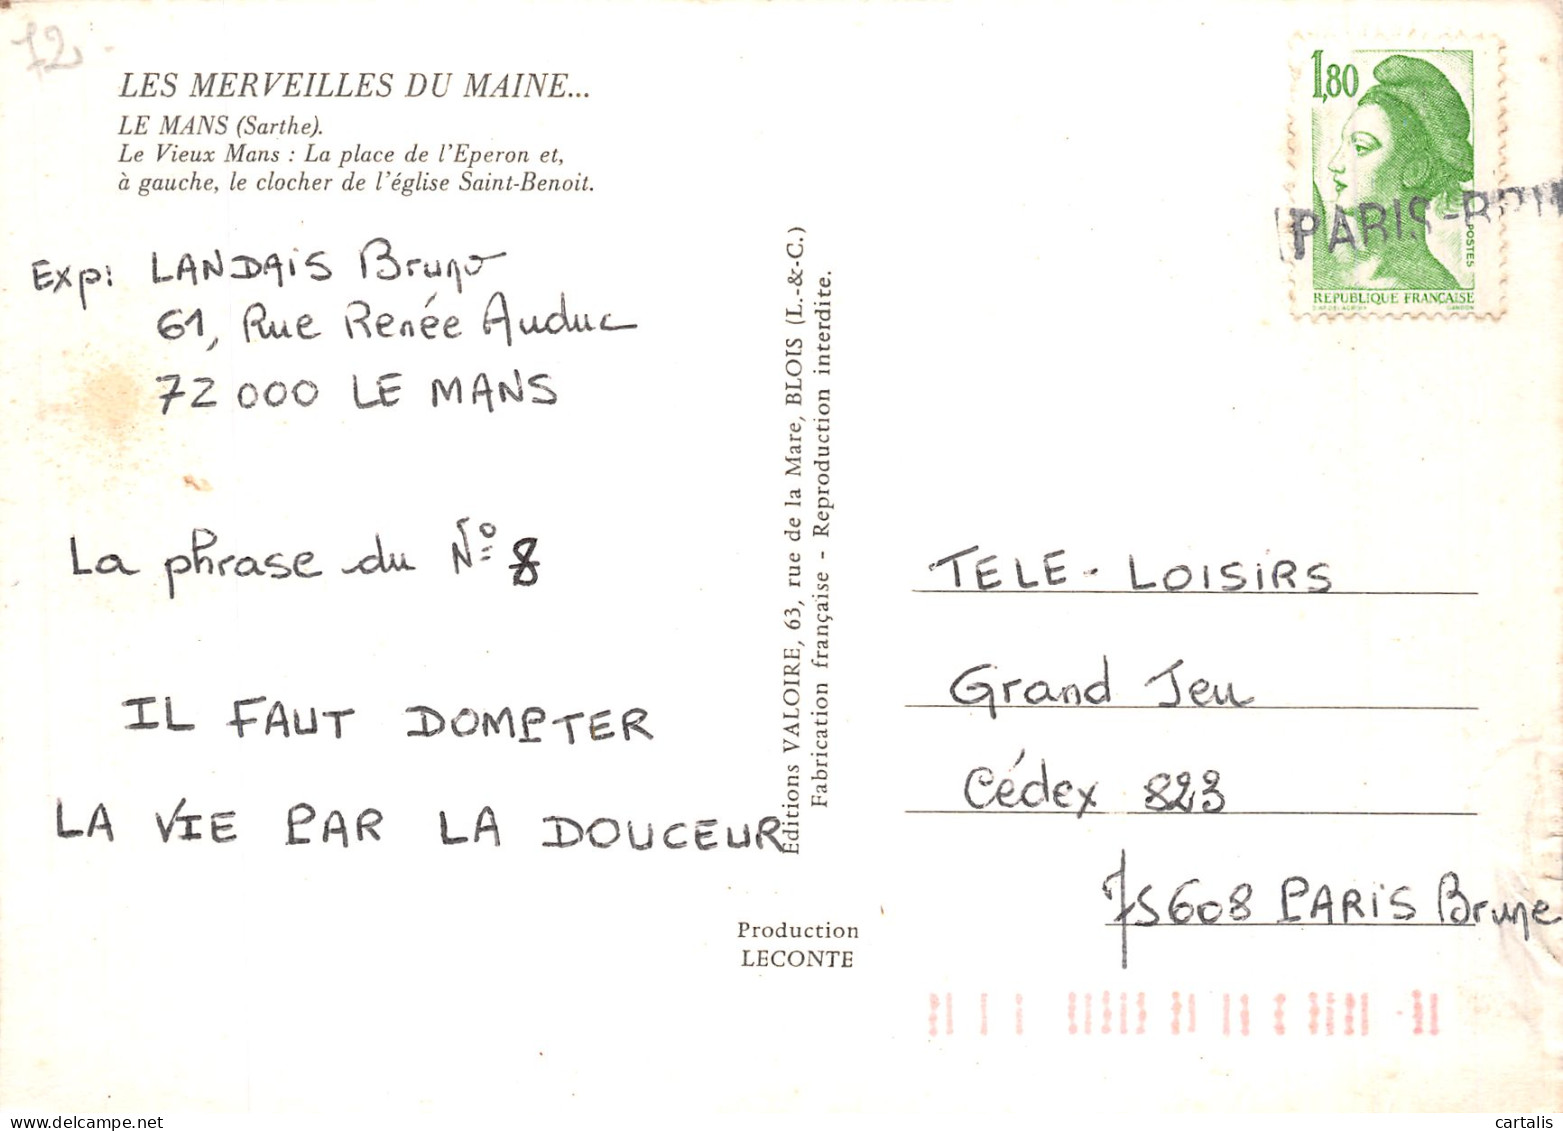 72
LES MERVEILLES DU MAINE...
LE MANS (Sarthe).
Le Vieux Mans : La place de l'Eperon et,
à gauche, le clocher de l'église Saint-Benoit.
Exp: LANDAIS Bruno
61, Rue Renée Auduc
72 000 LE MANS
La phrase du N° 8
IL FAUT DOMPTER
LA VIE PAR LA DOUCEUR
Editions VALOIRE, 63, rue de la Mare, BLOIS (L.-&-C.)
Fabrication française - Reproduction interdite.
Production
LECONTE
1,80
POSTES
REPUBLIQUE FRANÇAISE
PARIS-
TELE-LOISIRS
Grand Jeu
Cédex 823
75608 PARIS Brune
Delcampe.net
cartalis